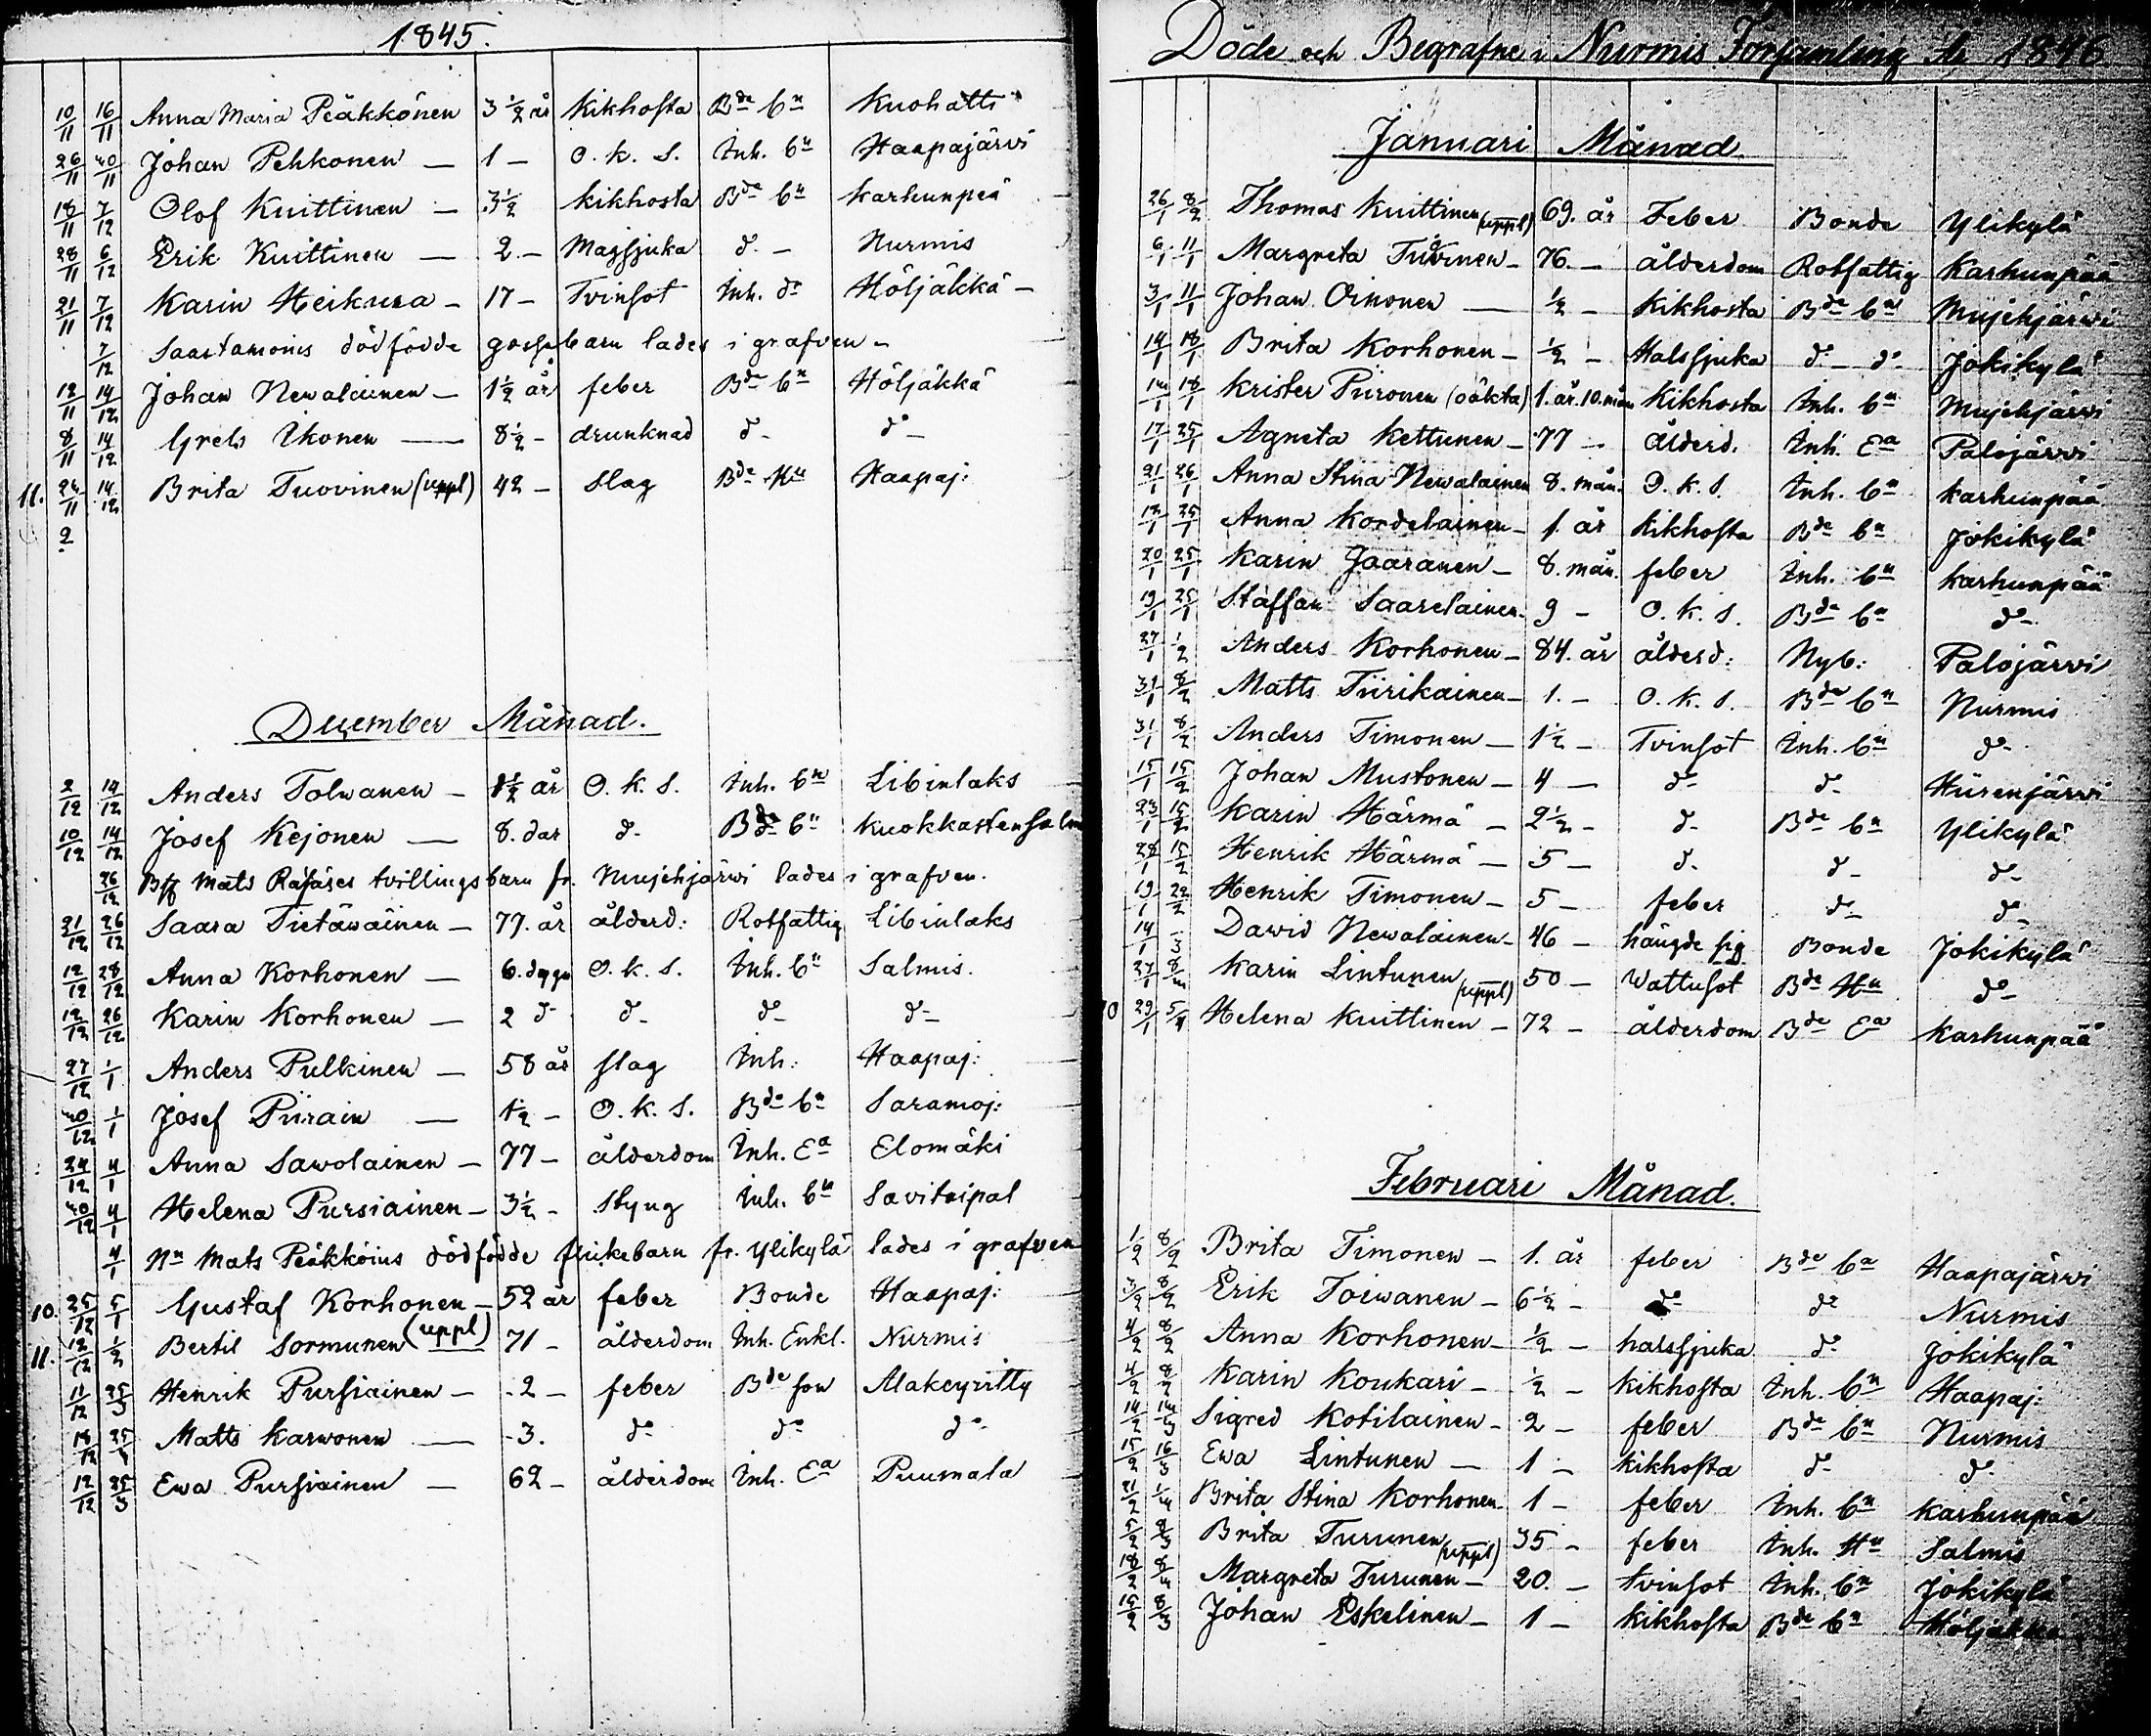 1845.
10/11 16/11 Anna Maria Peäkkönen 3 1/2 år Kikhosta Bde bn Kuohatti
26/11 30/11 Johan Pehkonen — 1 — O. k. S. Inh. bn Haapajärvi
18/11 7/12 Olof Kuittinen — 3 1/2 kikhosta Bde bn Karhunpeä
28/11 6/12 Erik Kuittinen — 2 — Magsjuka do — Nurmis
21/11 7/12 Karin Heikura — 17 — Tvinsot Inh. do Höljäkkä —
7/12 Saastamoinis dödfödde gossebarn lades i grafven —
12/11 14/12 Johan Newalainen — 1 1/2 år feber Bde bn Höljäkkä
8/11 14/12 Grels Ikonen — 8 1/2 — drunknad do — do —
11. 24/11 14/12 Brita Tuovinen (uppl) 42 — Slag Bde Hu Haapaj:
2
December Månad.
2/12 14/12 Anders Tolwanen — 1 1/2 år O. k. S. Inh. bn Libinlaks
10/12 14/12 Josef Kejonen — 8. dar do — Bde bn Kuokkastensalm
26/12 Mats Räsäses tvillingsbarn fr. Mujehjärwi lades i grafven.
21/12 26/12 Saara Tietäwäinen — 77. år ålderd: Rotfattig Libinlaks
12/12 28/12 Anna Korhonen — 6. dygn O. k. S. Inh. bn Salmis.
12/12 26/12 Karin Korhonen — 2 do do — do — do —
27/12 1/1 Anders Pulkinen — 58 år slag Inh: Haapaj:
30/12 1/1 Josef Piirain — 1 1/2 — O. k. S. Bde bn Saramoj:
24/12 4/1 Anna Sawolainen — 77 — ålderdom Inh. Ea Elomäki
30/12 4/1 Helena Pursiainen — 3 1/2 — Styng Inh. bn Savitaipal
4/1 Mats Peäkköins dödfödde flickebarn fr. Ylikylä lades i grafven
10. 25/12 5/1 Gustaf Korhonen — 52 år feber Bonde Haapaj:
11. 12/12 1/2 Bertil Sormunen (uppl) 71 — ålderdom Inh. Enkl. Nurmis
11/12 25/3 Henrik Pursiainen — 2 — feber Bde son Alakeyritty
18/12 25/3 Matts Karwonen — 3. do do do
12/12 25/3 Ewa Pursiainen — 62 — ålderdom Inh. Ea Puumala
Döde och Begrafne i Nurmis Församling År 1846
Januari Månad.
26/1 8/2 Thomas Kuittinen (uppl) 69. år Feber Bonde Ylikylä
6/1 11/1 Margreta Tuovinen — 76. — ålderdom Rotfattig Karhunpää
3/1 11/1 Johan Oinonen — 1/2 — Kikhosta Bde bn Mujehjärwi
14/1 18/1 Brita Korhonen — 1/2 — Halssjuka do — do Jokikylä
18/1 Krister Piironen (oäkta) 1. år. 10. mån Kikhosta Inh. bn Mujehjärvi
17/1 25/1 Agneta Kettunen — 77 — ålderd. Inh. Ea Palojärvi
21/1 26/1 Anna Stina Newalainen 8. mån. O. k. S. Inh. bn Karhunpää
12/1 25/1 Anna Kordelainen — 1. år Kikhosta Bde bn Jokikylä
20/1 25/1 Karin Jaaranen — 8. mån. feber Inh. bn Karhunpää
19/1 25/1 Staffan Saarelainen — 9 — O. k. S. Bde bn do —
27/1 1/2 Anders Korhonen — 84. år ålderd: Nyb: Palojärvi
31/1 8/2 Matts Tiirikainen — 1. — O. k. S. Bde bn Nurmis
31/1 8/2 Anders Timonen — 1 1/2 — Tvinsot Inh. bn do —
15/1 15/2 Johan Mustonen — 4 — do do Hiirenjärvi
23/1 15/2 Karin Härmä — 2 1/2 — do Bde bn Ylikylä
28/1 15/2 Henrik Härmä — 5 — do do — do —
19/1 22/2 Henrik Timonen — 5 — feber do — do —
14/1 Dawid Newalainen — 46 — hängde sig Bonde Jokikylä
27/1 Karin Lintunen (uppl) 50 — Wattusot Bde Hu do —
10 29/1 5/4 Helena Kuittinen — 72 — ålderdom Bde Ea Karhunpää
Februari Månad.
1/2 8/2 Brita Timonen — 1. år feber Bde bn Haapajärvi
3/2 8/2 Erik Toiwanen — 6 1/2 — do do Nurmis
4/2 8/2 Anna Korhonen — 1/2 — halssjuka do Jokikylä
4/2 8/2 Karin Koukari — 1/2 — Kikhosta Inh. bn Haapaj:
14/2 Sigred Kotilainen — 2 — feber Bde bn Nurmis
15/2 16/3 Ewa Lintunen — 1 — kikhosta do do
21/2 Brita Stina Korhonen — 1 — feber Inh. bn Karhunpää
5/2 Brita Turunen (uppl) 35 — feber Inh. Hu Salmis
18/2 Margreta Turunen — 20. — tvinsot Inh. bn Jokikylä
15/2 8/3 Johan Eskelinen — 1 — kikhosta Bde bn Höljäkkä